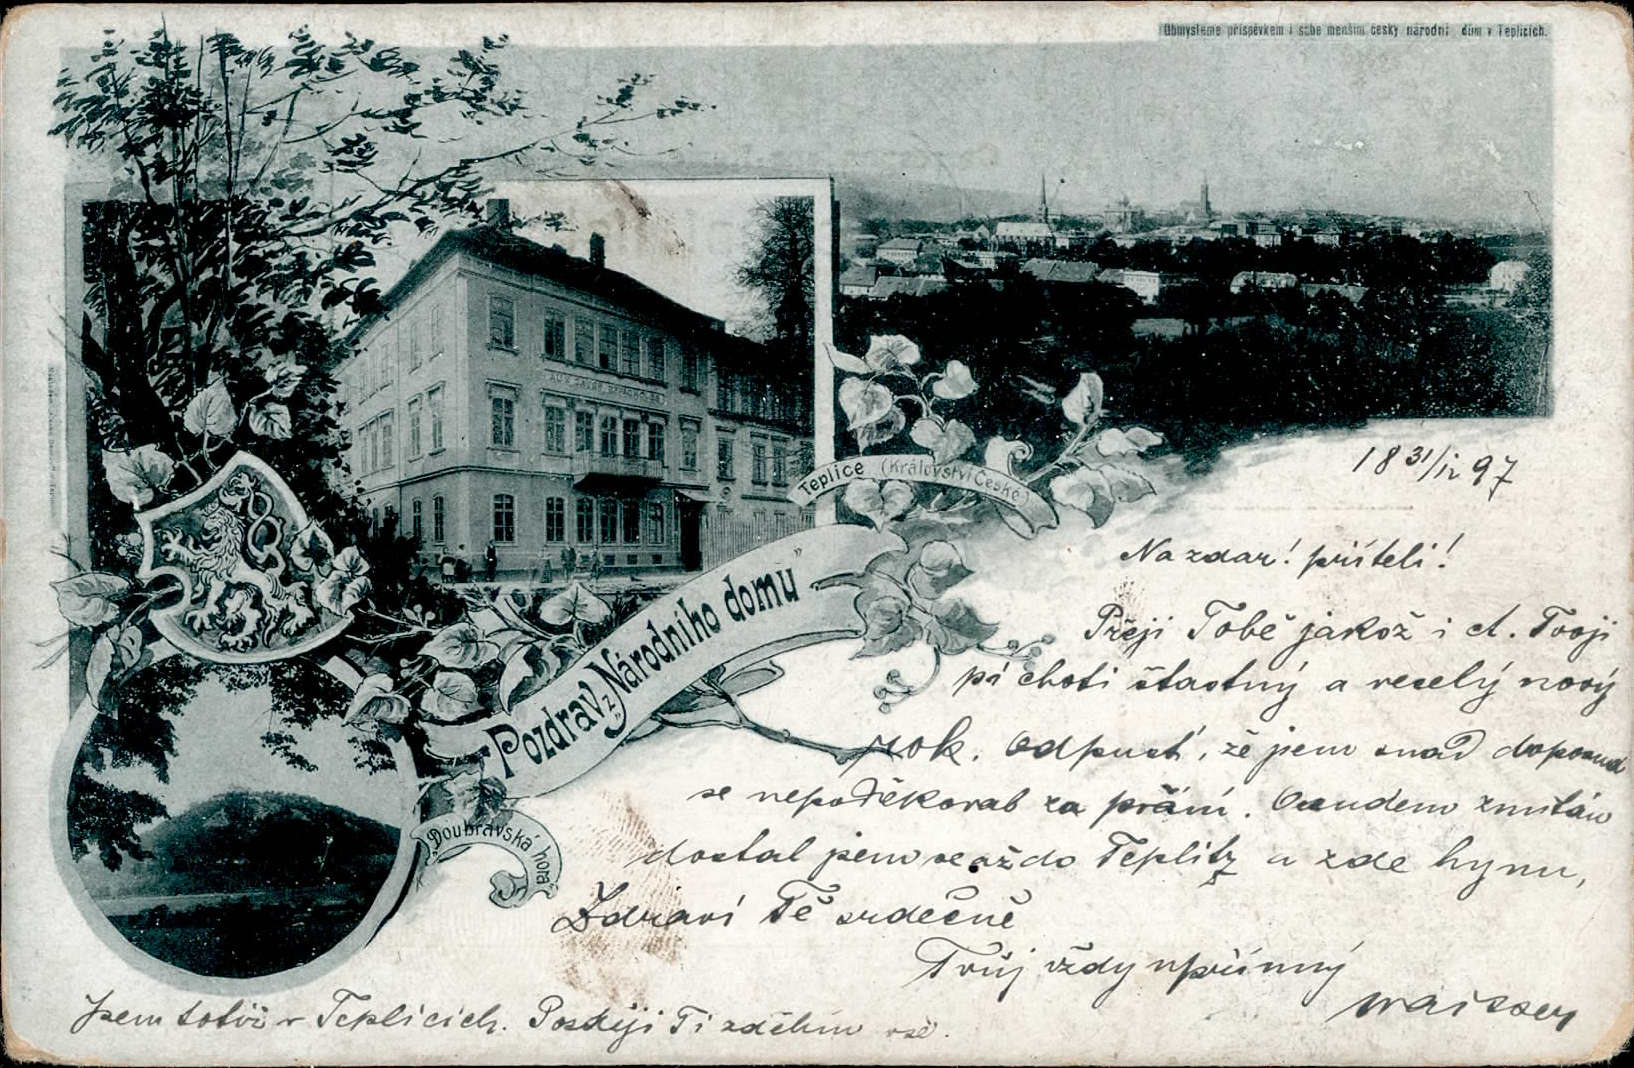 Obmysleme příspěvkem i sebe menším český národní dům v Teplicích.
Teplice (Království České)
Pozdrav z „Národního domu”
Doubravská hora
18 31/12 97
Na zdar! příteli!
Přeji Tobě jakož i ct. Tvoji
pí choti štastný a veselý nový
rok. Odpusť, že jsem snad doposud
se nepoděkoval za přání. Osudem zmítán
dostal jsem se až do Teplitz a zde hynu,
Zdraví Tě srdečně
Tvůj vždy upřímný
Jsem totiž v Teplicích. Později Ti zdělím vše.